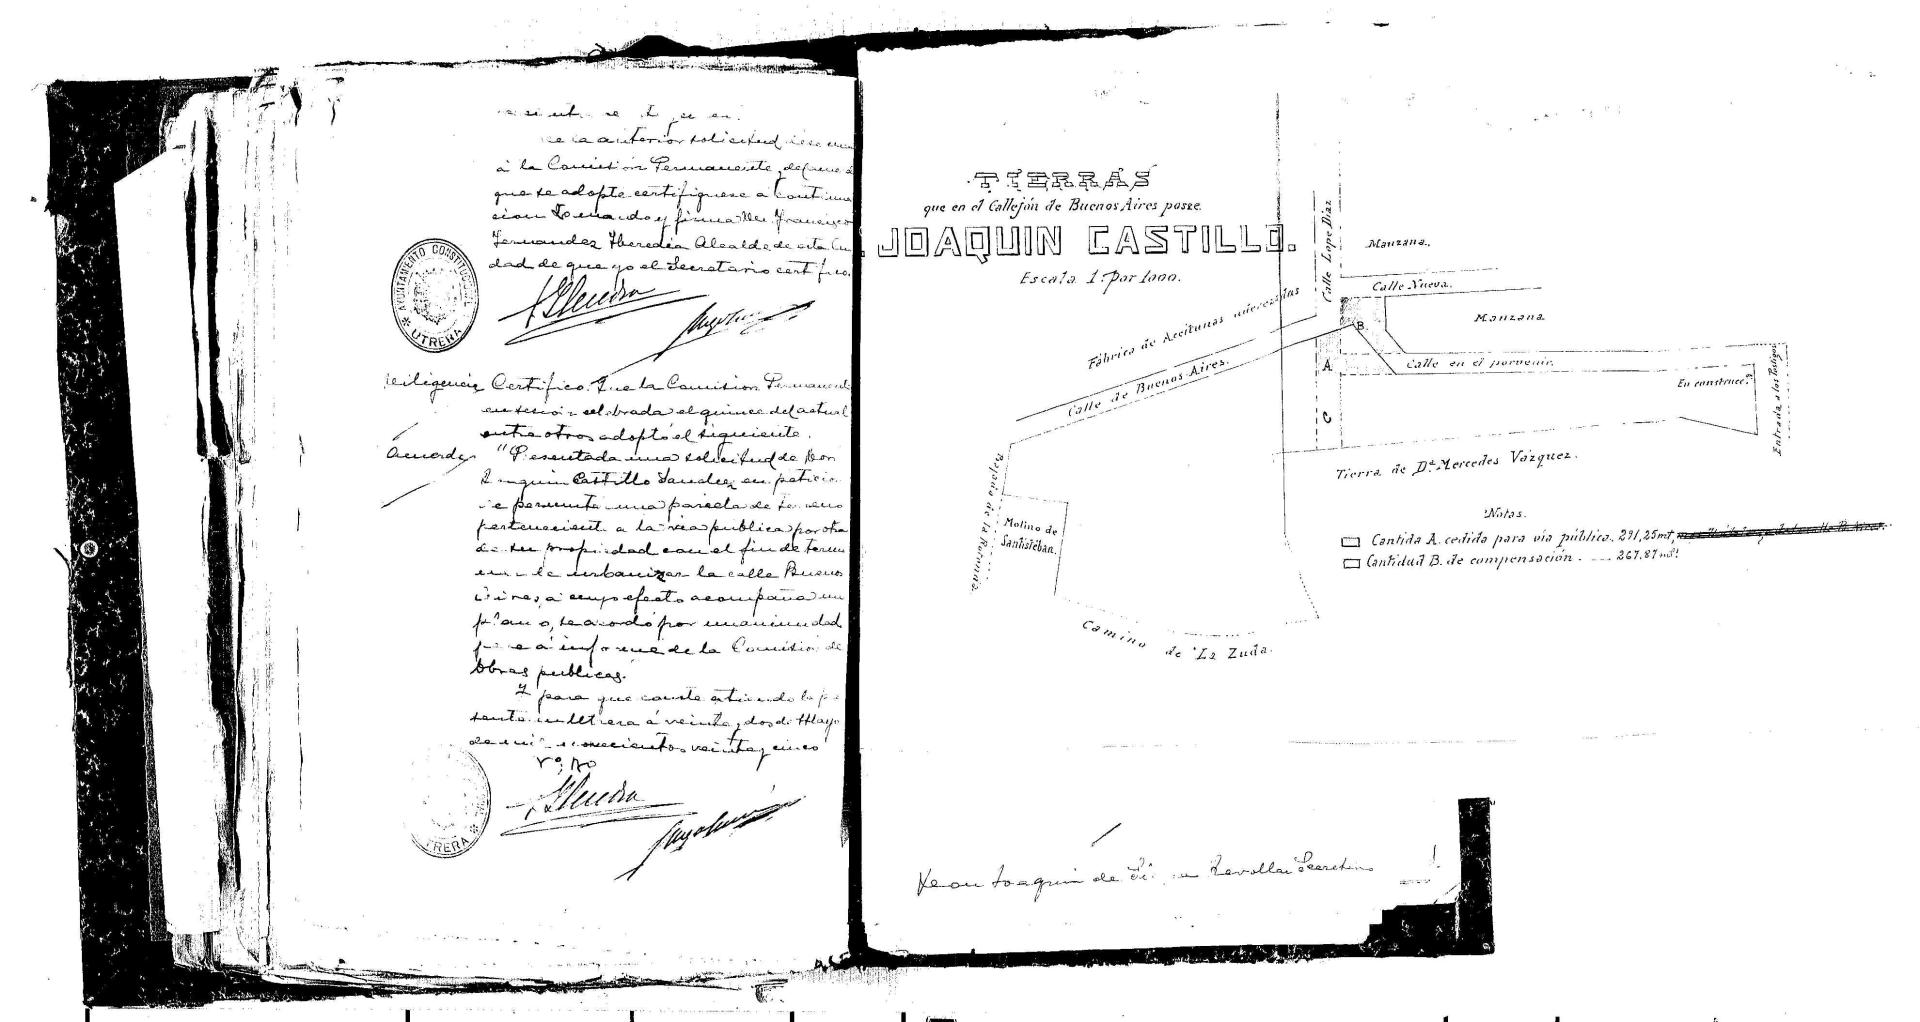 la anterior solicitud
á la Comisión Permanente, del
que se adopte certifiquese á continua
cion Lo mando y firma Don Francisco
Fernandez Heredia Alcalde de esta Ciu
dad de que yo el Secretario certifico.
AYUNTAMIENTO CONSTITUCIONAL
* UTRERA *
FHeredia
Diligencia Certifico: Que la Comision Permanente
en sesión celebrada el quince del actual
entre otros adoptó el siguiente.
Acuerdo "Presentada una solicitud de Don
Joaquin Castillo Sanchez en petición
se permuta una parcela de terreno
perteneciente a la via publica por otra
de su propiedad con el fin de termi
de urbanizar la calle Buenos
Aires, a cuyo efecto acompaña un
plano, se acordó por unanimidad
pase á informe de la Comisión de
Obras publicas."
Y para que conste extiendo la pre
sente en Utrera á veinte y dos de Mayo
de mil novecientos veinte y cinco
Vº Bº
FHeredia
TRERA *
TIERRAS
que en el Callejón de Buenos Aires posee.
JOAQUIN CASTILLO.
Escala 1: Por 1000.
Calle Lope Diaz
Manzana.
Calle Nueva.
Manzana
Fábrica de Aceitunas
Calle de Buenos Aires.
B.
A
C
Calle en el porvenir.
En construcc.
Entrada a los Postigos
Tierra de Dª Mercedes Vázquez.
Molino de
Santistéban.
Camino de La Zuda.
Notas.
Cantida A. cedida para vía pública. 291,25 mt,
Cantidad B. de compensación ---- 267,87 m²
Don Joaquin de Revollar Secretario